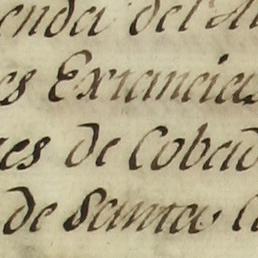 enda del A
es Extancias
es de Cobad
de Santa C